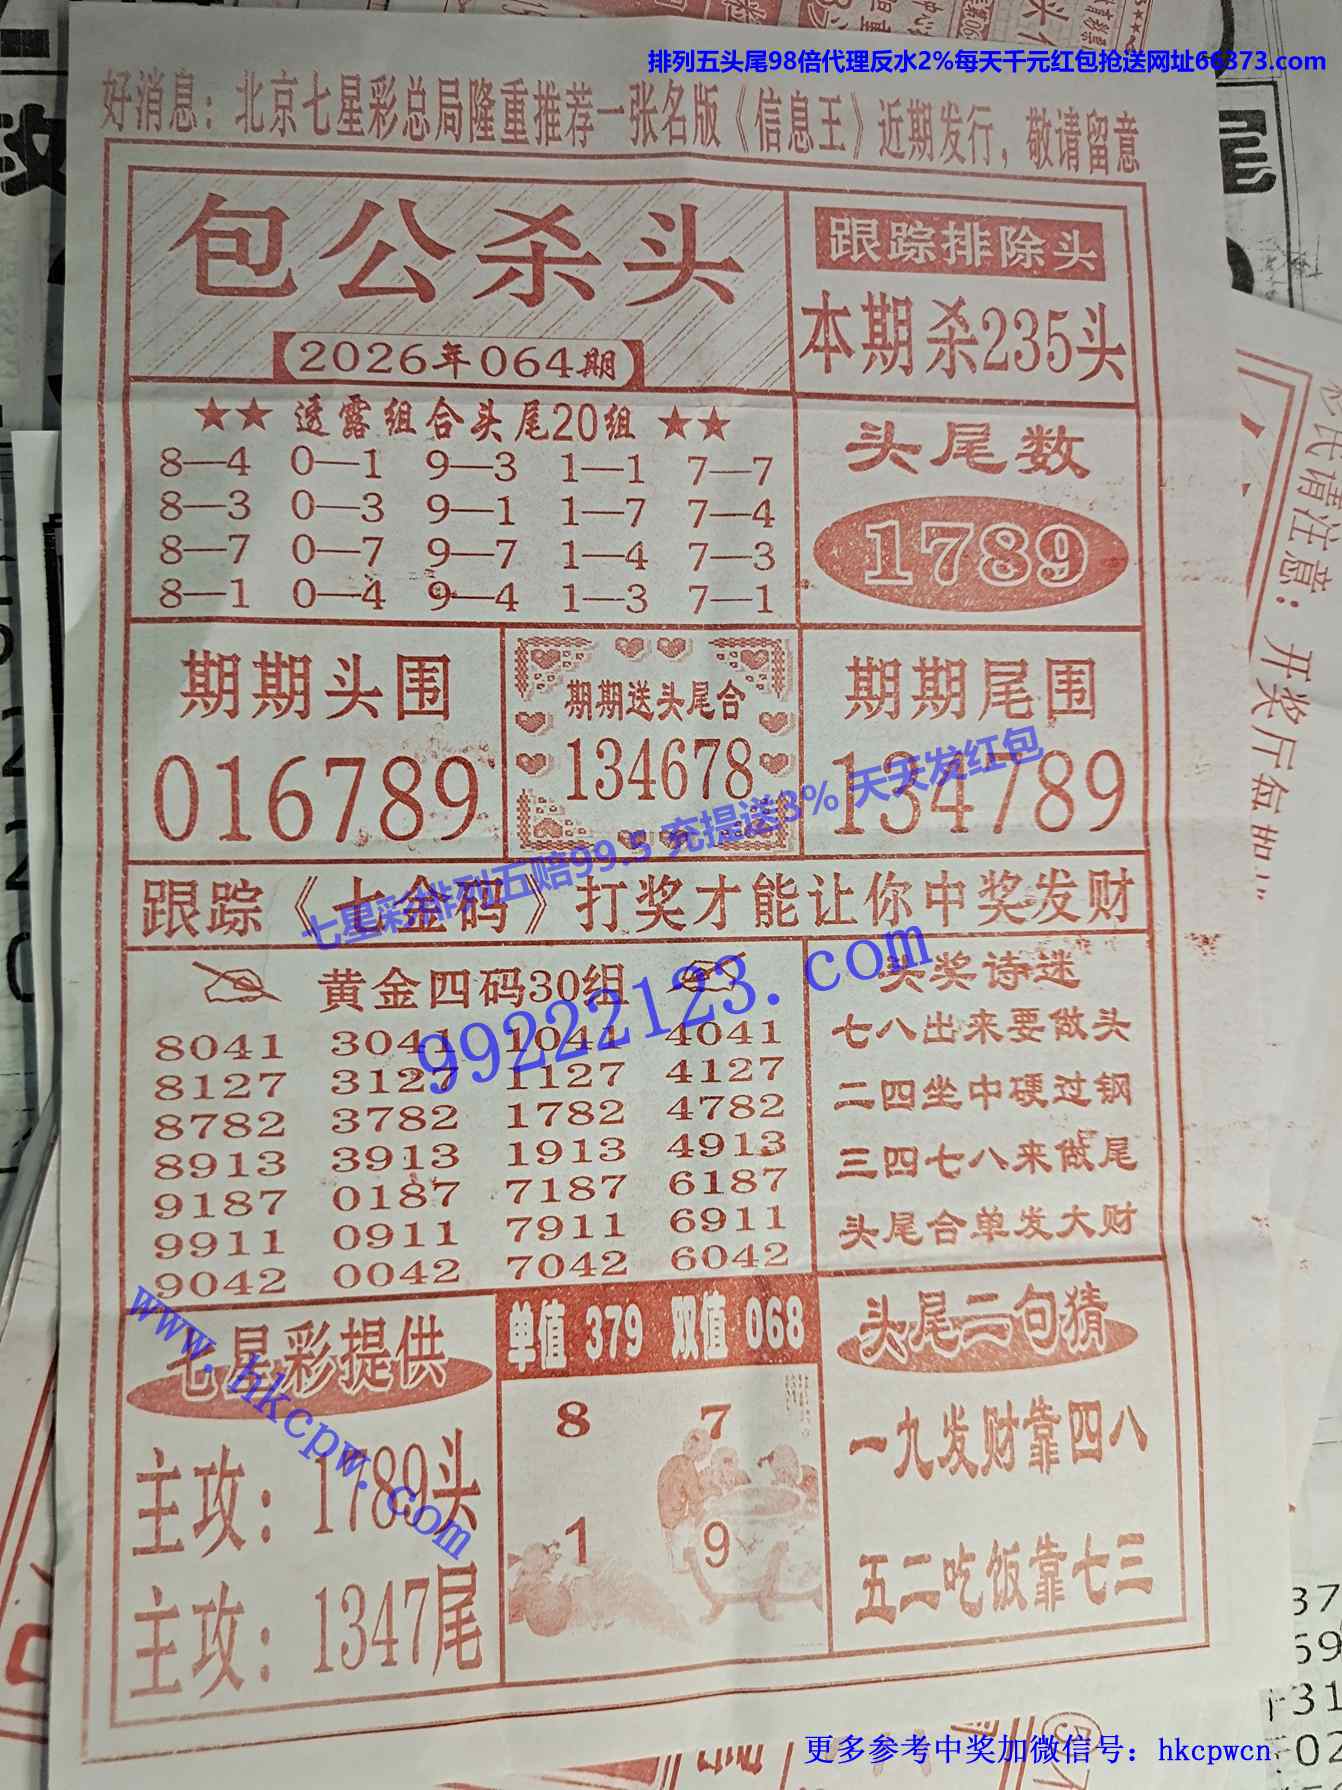 排列五头尾98倍代理反水2%每天千元红包抢送网址66373.com
好消息：北京七星彩总局隆重推荐一张名版《信息王》近期发行，敬请留意
包公杀头
【2026年064期】
跟踪排除头
本期杀235头
★★ 透露组合头尾20组 ★★
8—4 0—1 9—3 1—1 7—7
8—3 0—3 9—1 1—7 7—4
8—7 0—7 9—7 1—4 7—3
8—1 0—4 9—4 1—3 7—1
头尾数
1789
期期头围
016789
期期送头尾合
134678
期期尾围
134789
七星彩排列五赔99.5 充提送3% 天天发红包
跟踪《七金码》打奖才能让你中奖发财
99222123.com
黄金四码30组
8041 3041 1041 4041
8127 3127 1127 4127
8782 3782 1782 4782
8913 3913 1913 4913
9187 0187 7187 6187
9911 0911 7911 6911
9042 0042 7042 6042
头奖诗迷
七八出来要做头
二四坐中硬过钢
三四七八来做尾
头尾合单发大财
www.hkcpw.com
七星彩提供
主攻：1789头
主攻：1347尾
单值 379 双值 068
8 7
1 9
头尾二句猜
一九发财靠四八
五二吃饭靠七三
民请注意：开奖厅每
更多参考中奖加微信号：hkcpwcn